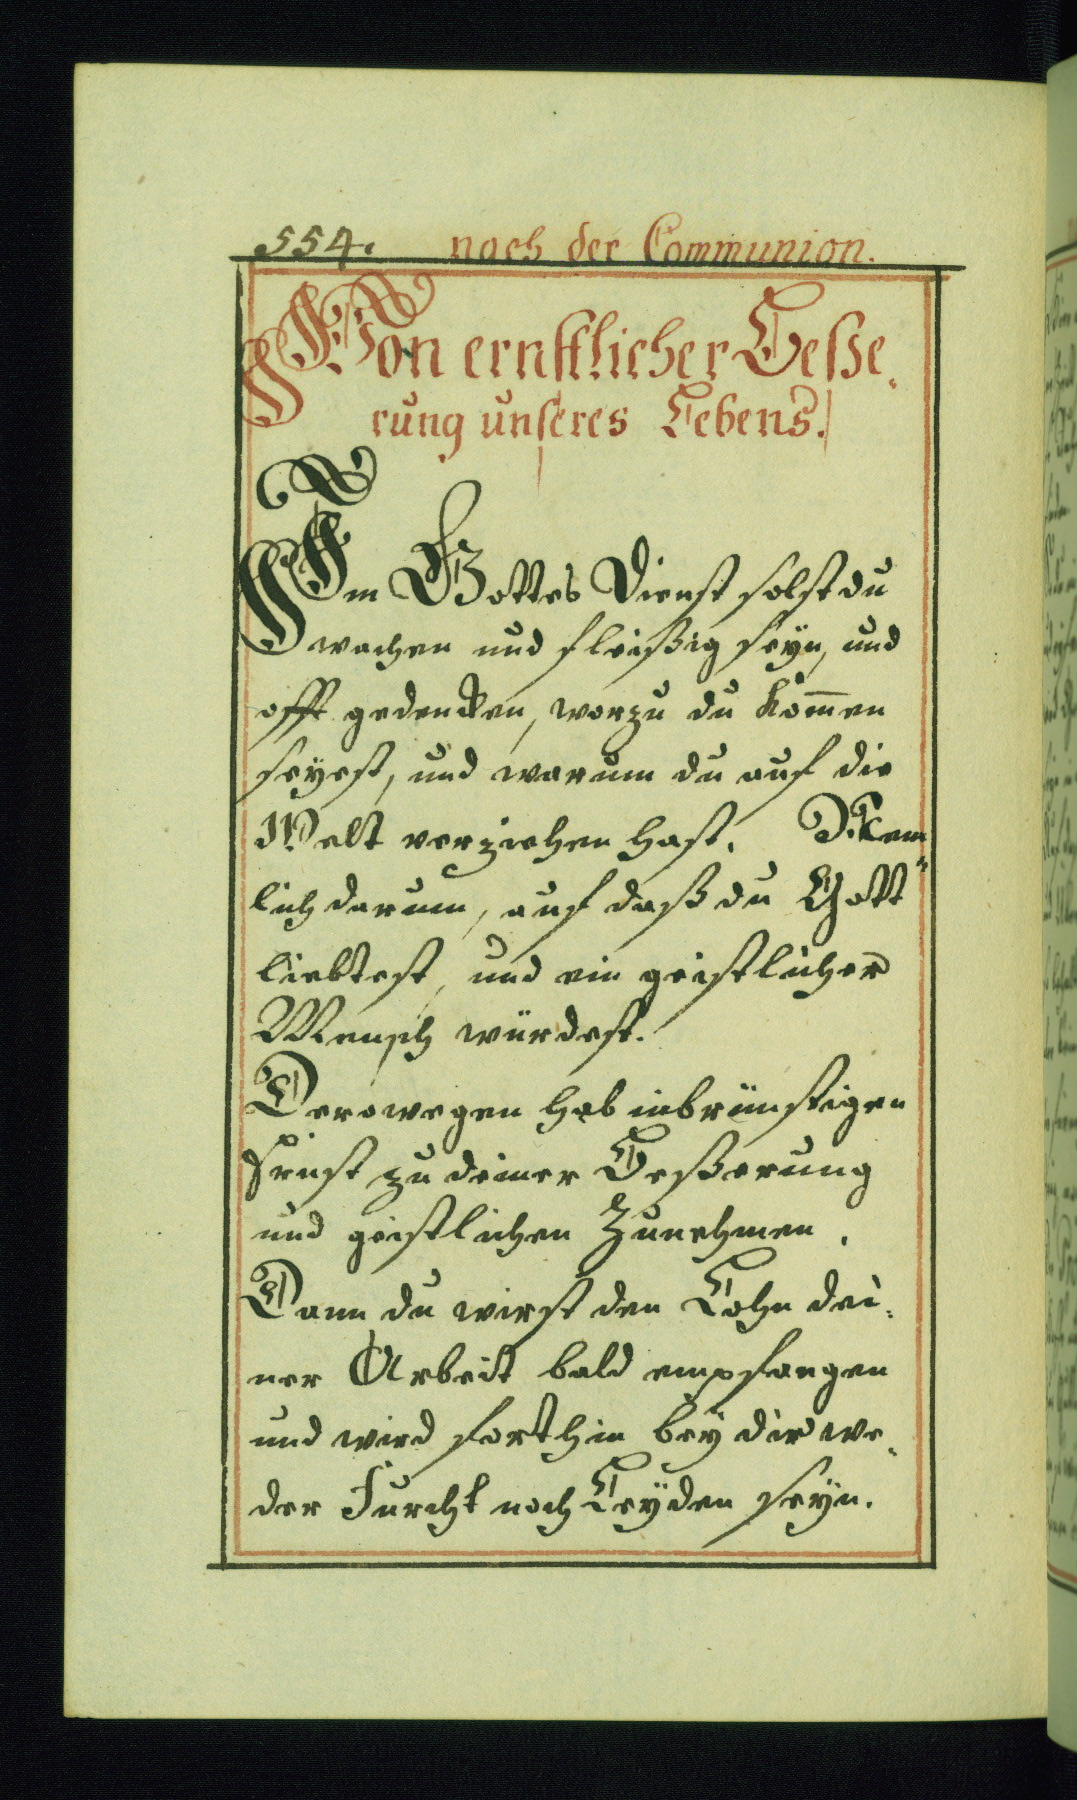 554. nach der Communion.
Von ernstlicher Besse,
rung unseres Lebens.
Im Gottes Dienst solst du
wachen und fleißig seÿn, und
offt gedencken, worzu du kom̄en
seÿest, und warum du auf die
Welt verziehen hast. Nem„
lich darum, auf daß du Gott
liebtest, und ein geistlicher
Mensch würdest.
Derowegen hab inbrünstigen
Ernst zu deiner Beßerung
und geistlichen Zunehmen.
Dann du wirst den Lohn dei,
ner Arbeit bald empfangen
und wird forthin beÿ dir we,
der Furcht noch Leÿden seÿn.